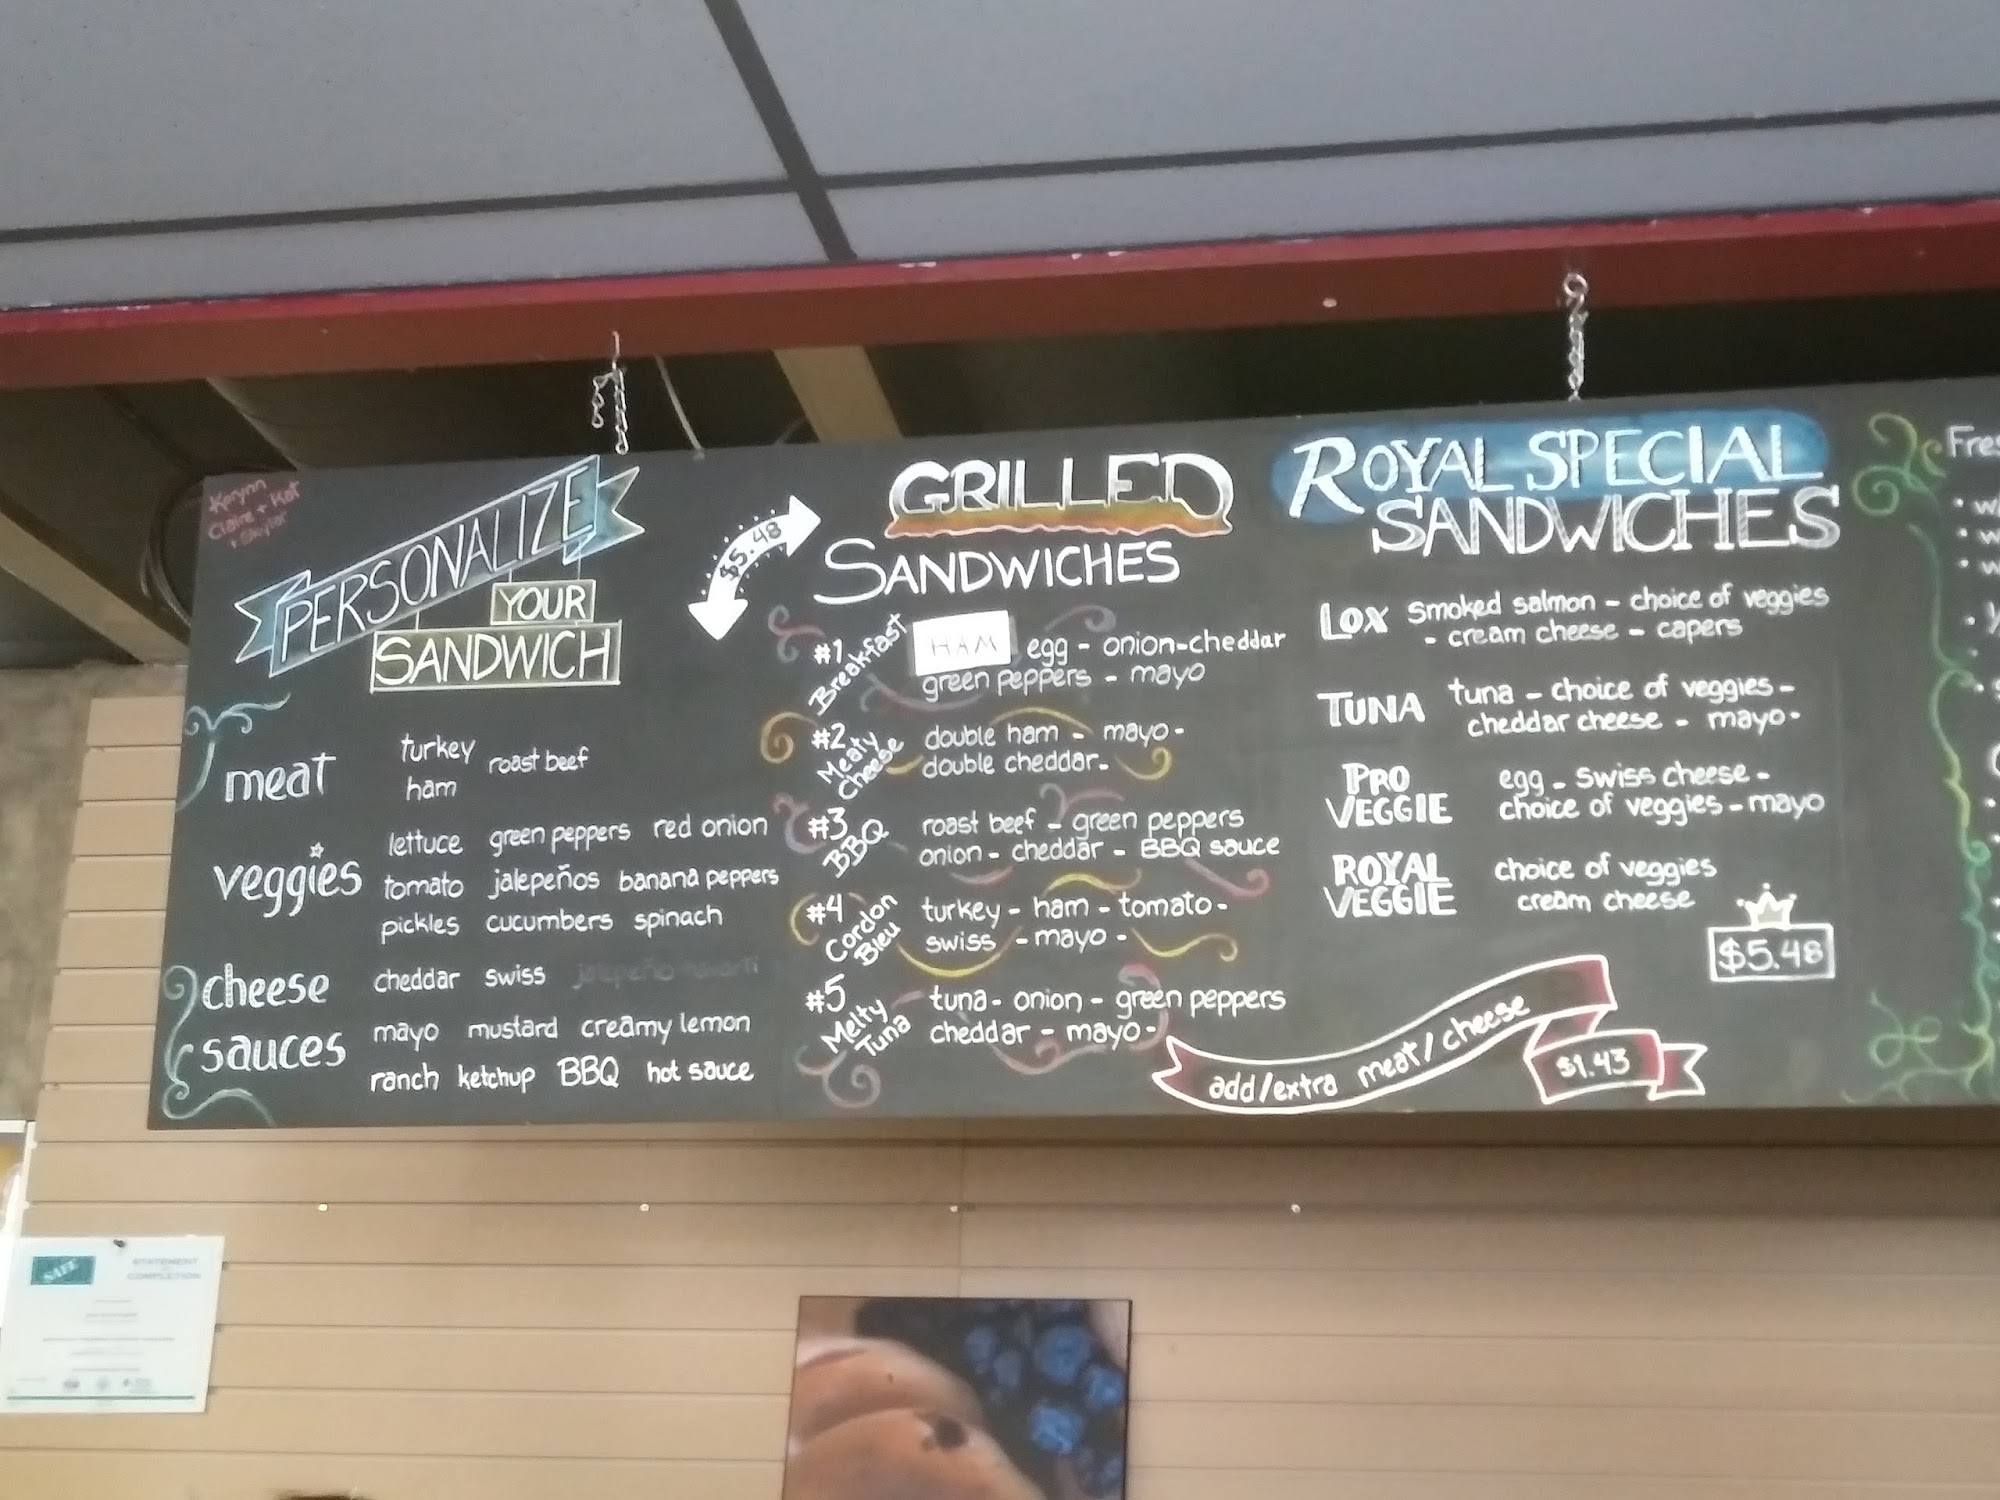 Karynn
Claire + Kat
+ Skylar
PERSONALIZE
YOUR
SANDWICH
meat
turkey roast beef
ham
veggies
lettuce green peppers red onion
tomato jalepeños banana peppers
pickles cucumbers spinach
cheese
cheddar swiss jalepeño havarti
sauces
mayo mustard creamy lemon
ranch ketchup BBQ hot sauce
$5.48
GRILLED
SANDWICHES
#1 Breakfast
HAM egg - onion-cheddar
green peppers - mayo
#2 Meaty Cheese
double ham - mayo -
double cheddar-
#3 BBQ
roast beef - green peppers
onion - cheddar - BBQ sauce
#4 Cordon Bleu
turkey - ham - tomato -
swiss - mayo -
#5 Melty Tuna
tuna- onion - green peppers
cheddar - mayo-
ROYAL SPECIAL
SANDWICHES
LOX smoked salmon - choice of veggies
- cream cheese - capers
TUNA tuna - choice of veggies -
cheddar cheese - mayo-
PRO VEGGIE
egg - swiss cheese -
choice of veggies - mayo
ROYAL VEGGIE
choice of veggies
cream cheese
$5.48
add/extra meat/cheese
$1.43
Fres
SAFE
STATEMENT
COMPLETION